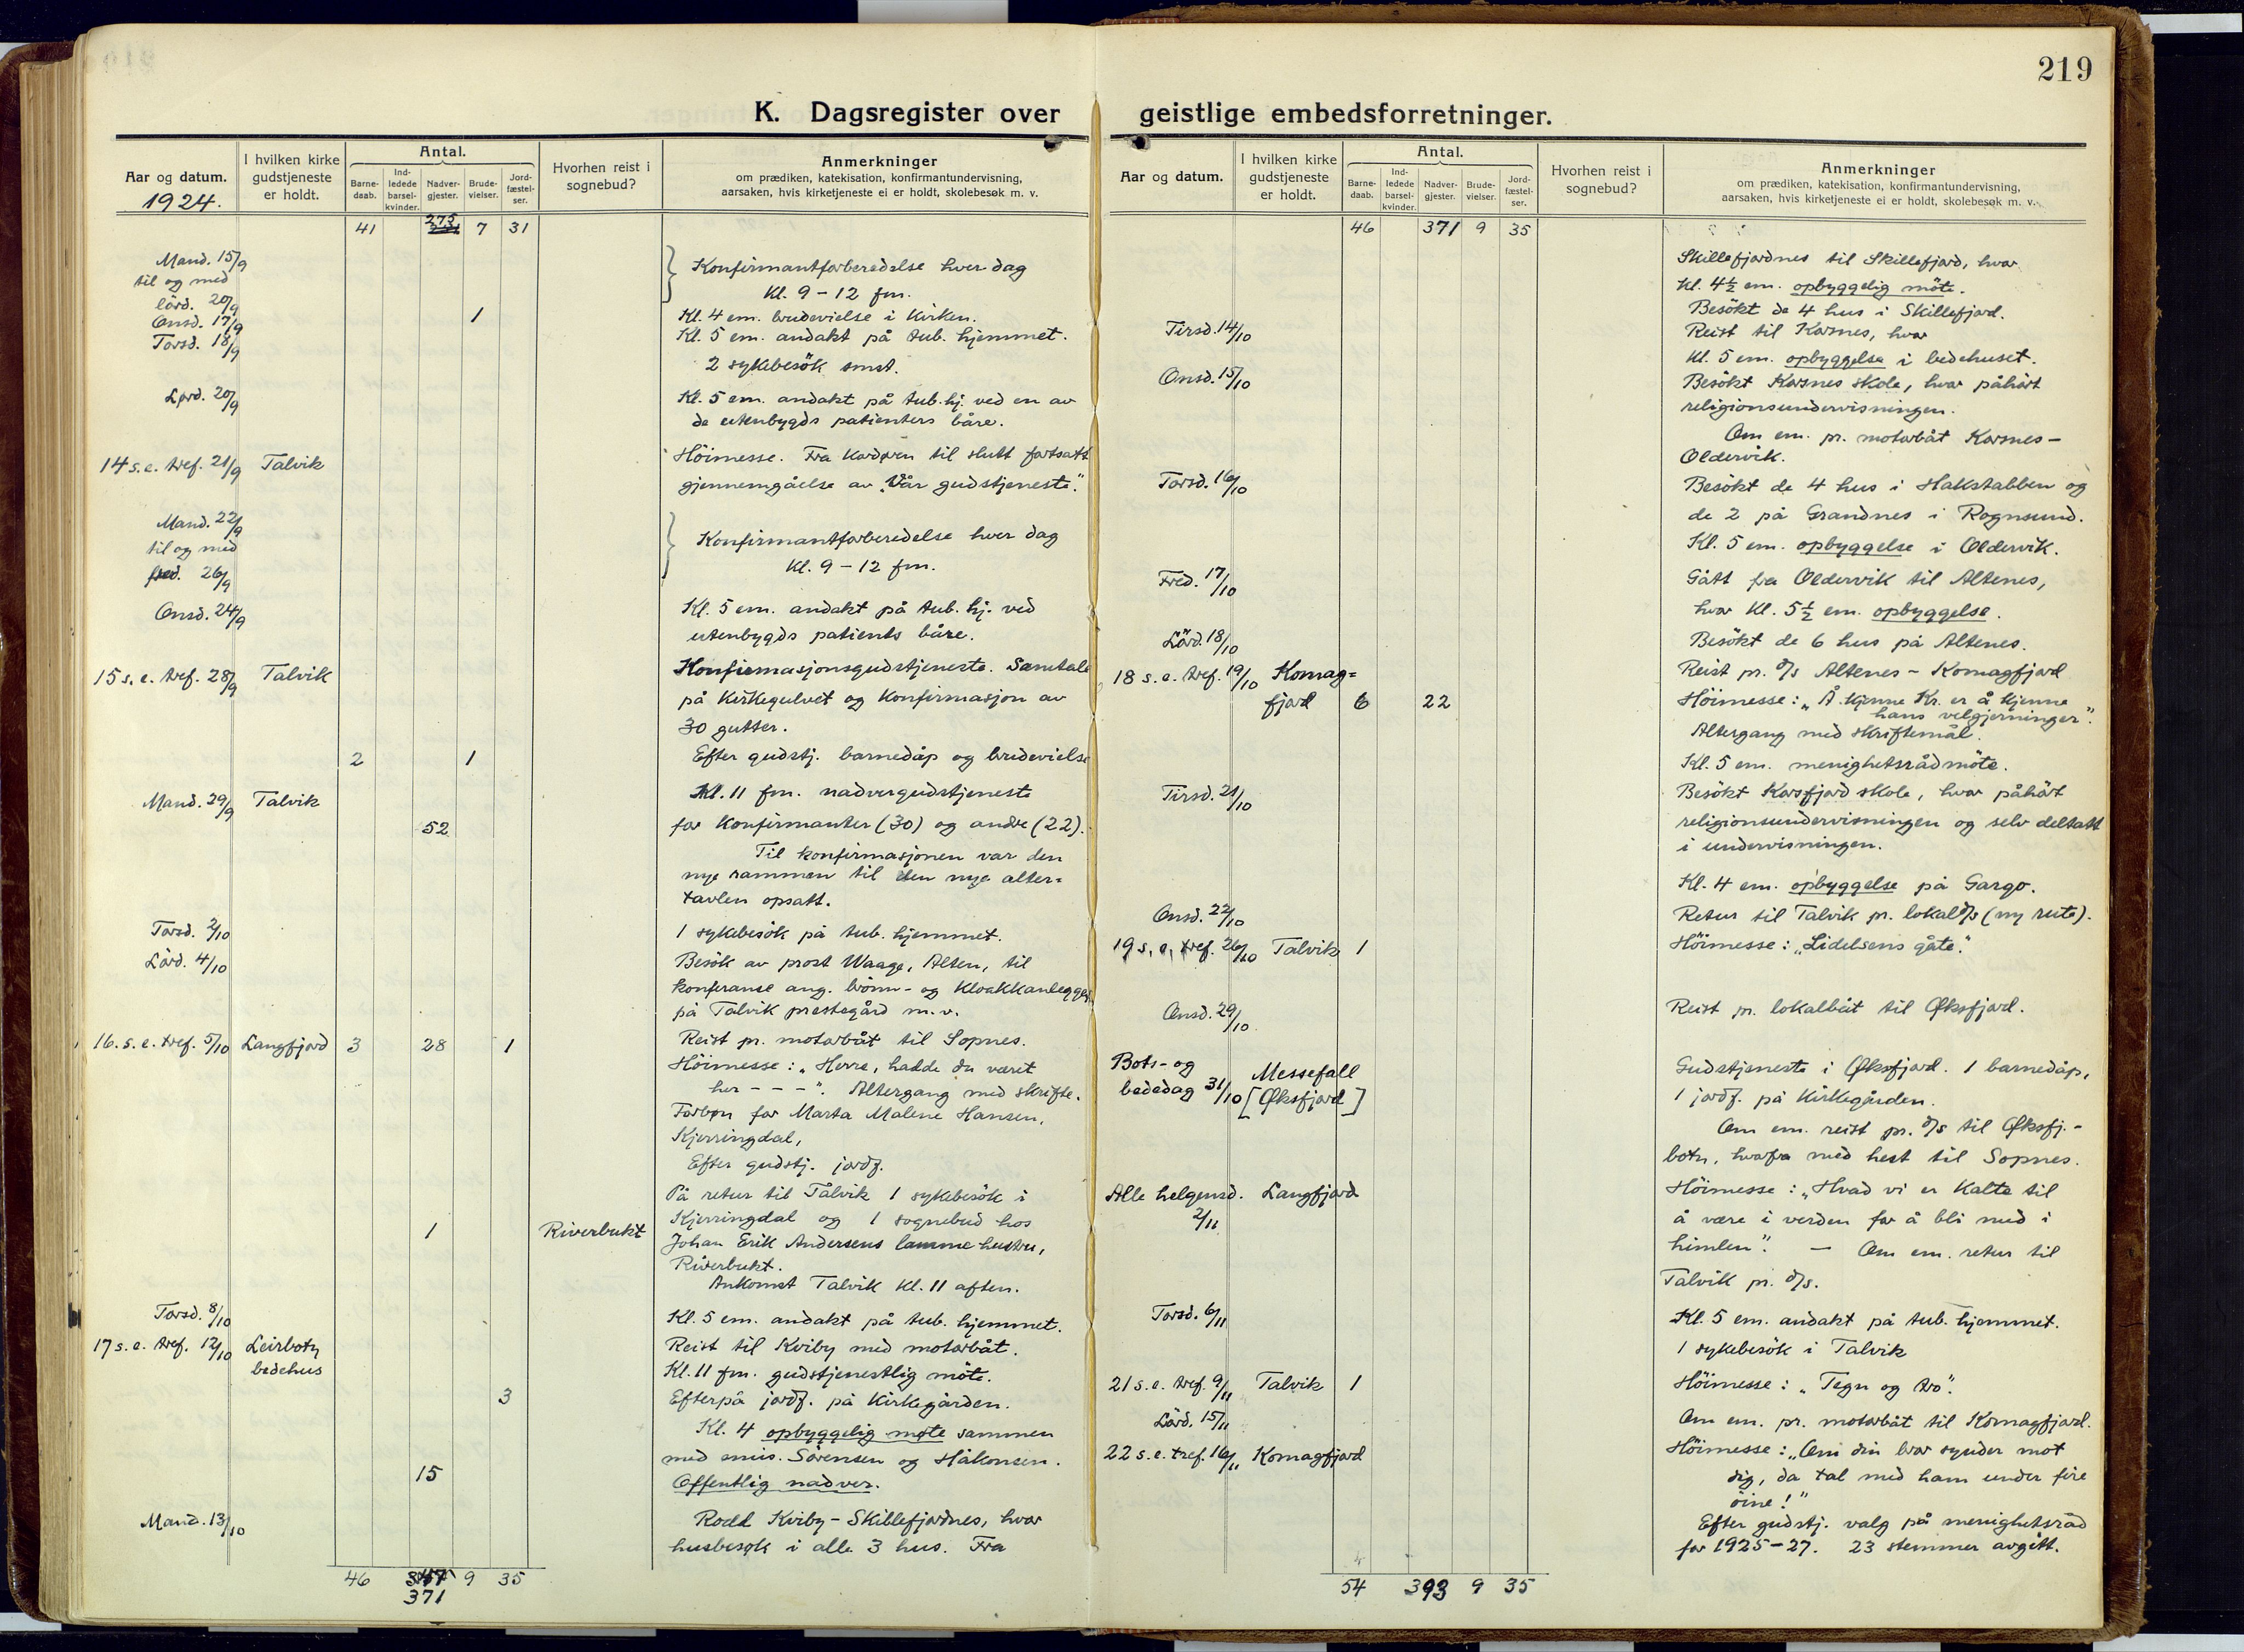 219
K. Dagsregister over geistlige embedsforretninger.
Aar og datum.
1924.
I hvilken kirke gudstjeneste er holdt.
Antal.
Barne-daab.
Ind-ledede barsel-kvinder.
Nadver-gjester.
Brude-vielser.
Jord-fæstel-ser.
Hvorhen reist i sognebud?
Anmerkninger
om prædiken, katekisation, konfirmantundervisning,
aarsaken, hvis kirketjeneste ei er holdt, skolebesøk m. v.
41 275 7 31
Mand. 15/9
til og med
lörd. 20/9
Konfirmantforberedelse hver dag
Kl. 9 - 12 fm.
Onsd. 17/9 1 Kl. 4 em. brudevielse i Kirken.
Torsd. 18/9 Kl. 5 em. andakt på tub. hjemmet.
2 sykebesök smst.
Lørd. 20/9 Kl. 5 em. andakt på tub. hj. ved en av
de utenbygds patienters båre.
14 s. e. tref. 21/9 Talvik Höimesse. Fra kordøren til slutt fortsatt
gjennemgåelse av "Vår gudstjeneste".
Mand. 22/9
til og med
fred. 26/9
Konfirmantforberedelse hver dag
Kl. 9 - 12 fm.
Onsd. 24/9 Kl. 5 em. andakt på tub. hj. ved
utenbygds patients båre.
15 s. e. tref. 28/9 Talvik Konfirmasjonsgudstjeneste. Samtale
på Kirkegulvet og Konfirmasjon av
30 gutter.
2 1 Efter gudstj. barnedåp og brudevielse
Mand. 29/9 Talvik Kl. 11 fm. nadvergudstjeneste
52 for Konfirmanter (30) og andre (22).
Til konfirmasjonen var den
nye rammen til den nye alter=
tavlen opsatt.
Torsd. 2/10 1 sykebesök på tub. hjemmet.
Lörd. 4/10 Besök av prost Waage, Alten, til
konferanse ang. brönn- og Kloakkanlegget
på Talvik prestegård m. v.
16. s. e. tref. 5/10 Langfjord 3 28 1 Reist pr. motorbåt til Sopnes.
Höimesse: "Herre, hadde du været
her - - -". Altergang med skrifte.
Forbøn for Marta Malene Hansen,
Kjerringdal,
Efter gudstj. jordf.
På retur til Talvik 1 sykebesök i
1 Riverbukt Kjerringdal og 1 sognebud hos
Johan Erik Andersens lamme hustru,
Riverbukt.
Ankomst Talvik Kl. 11 aften.
Torsd. 8/10 Kl. 5 em. andakt på tub. hjemmet.
17 s. e. tref. 12/10 Leirbotn Reist til Kviby med motorbåt.
bedehus Kl. 11 fm. gudstjenestlig möte.
3 Efterpå jordf. på Kirkegården.
Kl. 4 opbyggelig møte sammen
med mis. Sörensen og Håkonsen.
15 Offentlig nadver.
Mand. 13/10 Rodd Kviby - Skillefjordnes, hvor
husbesøk i alle 3 hus. Fra
46 347 9 35
371
Aar og datum.
I hvilken kirke gudstjeneste er holdt.
Antal.
Barne-daab.
Ind-ledede barsel-kvinder.
Nadver-gjester.
Brude-vielser.
Jord-fæstel-ser.
Hvorhen reist i sognebud?
Anmerkninger
om prædiken, katekisation, konfirmantundervisning,
aarsaken, hvis kirketjeneste ei er holdt, skolebesøk m. v.
46 371 9 35
Skillefjordnes til Skillefjord, hvor
Kl. 4½ em. opbyggelig möte.
Besökt de 4 hus i Skillefjord.
Tirsd. 14/10 Reist til Korsnes, hvor
Kl. 5 em. opbyggelse i bedehuset.
Onsd. 15/10 Besökt Korsnes skole, hvor påhört
religionsundervisningen.
Om em. pr. motorbåt Korsnes -
Oldervik.
Torsd. 16/10 Besökt de 4 hus i Hakstabben og
de 2 på Grandnes i Rognsund.
Kl. 5 em. opbyggelse i Oldervik.
Fred. 17/10 Gått fra Oldervik til Altenes,
hvor Kl. 5½ em. opbyggelse.
Lörd. 18/10 Besökt de 6 hus på Altenes.
Reist pr. d/s Altenes - Komagfjord
18 s. e. tref. 19/10 Komag=
fjord 6 22 Höimesse: "Å kjenne Kr. er å kjenne
hans velgjerninger".
Altergang med skriftemål.
Kl. 5 em. menighetsrådmöte.
Tirsd. 21/10 Besökt Korsfjord skole, hvor påhört
religionsundervisningen og selv deltatt
i undervisningen.
Kl. 4 em. opbyggelse på Gargo.
Onsd. 22/10 Retur til Talvik pr. lokal d/s (ny rute).
19 s. e. tref. 26/10 Talvik 1 Höimesse: "Lidelsens gåte."
Onsd. 29/10 Reist pr. lokalbåt til Øksfjord.
Bots- og
bededag 31/10 Messefall
[Øksfjord]
Gudstjeneste i Øksfjord. 1 barnedåp,
1 jordf. på Kirkegården.
Om em. reist pr. d/s til Øksfj.-
botn, hvorfra med hest til Sopnes.
Alle helgensd.
2/11 Langfjord Höimesse: "Hvad vi er Kalte til
å være i verden for å bli med i
himlen". - Om em. retur til
Talvik pr. d/s.
Torsd. 6/11 Kl. 5 em. andakt på tub. hjemmet.
1 sykebesök i Talvik
21 s. e. tref. 9/11 Talvik 1 Höimesse: "Tegn og tro".
Lörd. 15/11 Om em. pr. motorbåt til Komagfjord.
22 s. e. tref. 16/11 Komagfjord Höimesse: "Om din bror synder mot
dig, da tal med ham under fire
öine!"
Efter gudstj. valg på menighetsråd
for 1925-27. 23 stemmer avgitt.
54 393 9 35